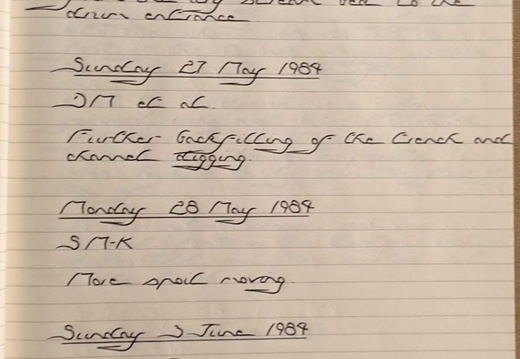 stream bed to the
drum entrance
Sunday 27 May 1984
DM et al.
Further backfilling of the trench and
channel digging.
Monday 28 May 1984
SM-K
More spoil moving.
Sunday 3 June 1984